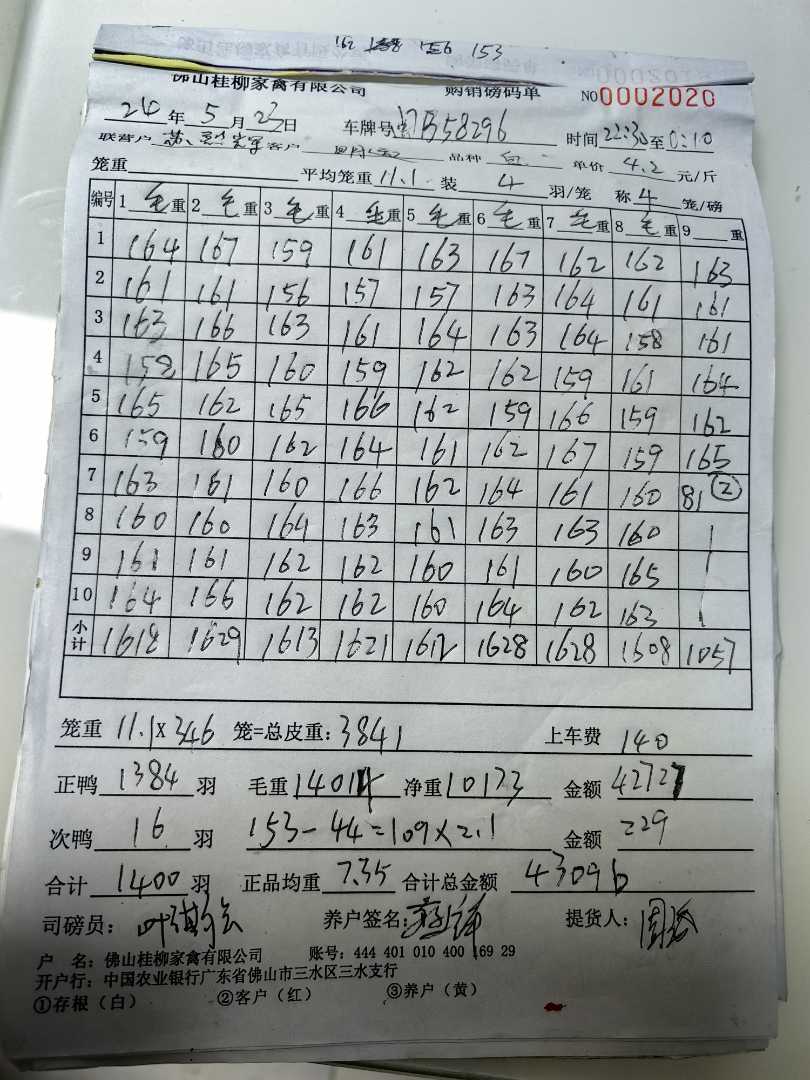 162 158 156 153
佛山桂柳家禽有限公司 购销磅码单 NO0002020
24年5月23日 车牌号 B58296 时间22:30至0:10
联营户 客户 品种 白 单价 4.2 元/斤
笼重 平均笼重 11.1 装 4 羽/笼 称 4 笼/磅
编号 1 毛重 2 毛重 3 毛重 4 毛重 5 毛重 6 毛重 7 毛重 8 毛重 9 重
1 164 167 159 161 163 167 162 162 163
2 161 161 156 157 157 163 164 161 161
3 163 166 163 161 164 163 164 158 161
4 158 165 160 159 162 162 159 161 164
5 165 162 165 166 162 159 166 159 162
6 159 160 162 164 161 162 167 159 165
7 163 161 160 166 162 164 161 160 81 ②
8 160 160 164 163 161 163 163 160
9 161 161 162 162 160 161 160 165
10 164 166 162 162 160 164 162 163
小计 1618 1629 1613 1621 1612 1628 1628 1608 1057
笼重 11.1×346 笼=总皮重:3841 上车费 140
正鸭 1384 羽 毛重 14014 净重 10173 金额 42727
次鸭 16 羽 153-44=109×2.1 金额 229
合计 1400 羽 正品均重 7.35 合计总金额 43096
司磅员: 养户签名: 提货人:
户 名:佛山桂柳家禽有限公司 账号:444 401 010 400 169 29
开户行:中国农业银行广东省佛山市三水区三水支行
①存根(白) ②客户(红) ③养户(黄)